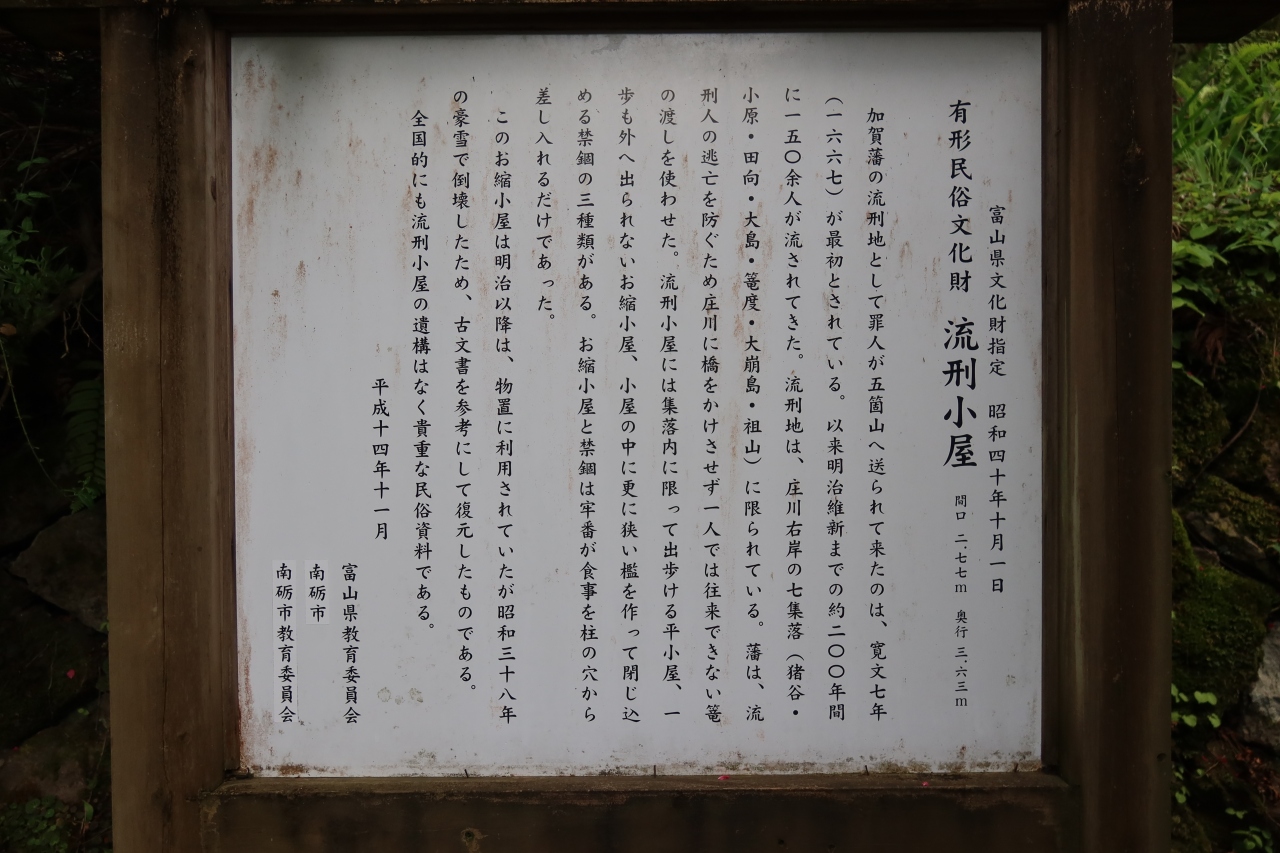 富山県文化財指定　昭和四十年十月一日
有形民俗文化財　流刑小屋　間口 二.七七m　奥行 三.六三m
加賀藩の流刑地として罪人が五箇山へ送られて来たのは、寛文七年
（一六六七）が最初とされている。以来明治維新までの約二〇〇年間
に一五〇余人が流されてきた。流刑地は、庄川右岸の七集落（猪谷・
小原・田向・大島・篭度・大崩島・祖山）に限られている。藩は、流
刑人の逃亡を防ぐため庄川に橋をかけさせず一人では往来できない篭
の渡しを使わせた。流刑小屋には集落内に限って出歩ける平小屋、一
歩も外へ出られないお縮小屋、小屋の中に更に狭い檻を作って閉じ込
める禁錮の三種類がある。お縮小屋と禁錮は牢番が食事を柱の穴から
差し入れるだけであった。
このお縮小屋は明治以降は、物置に利用されていたが昭和三十八年
の豪雪で倒壊したため、古文書を参考にして復元したものである。
全国的にも流刑小屋の遺構はなく貴重な民俗資料である。
平成十四年十一月
富山県教育委員会
南砺市
南砺市教育委員会